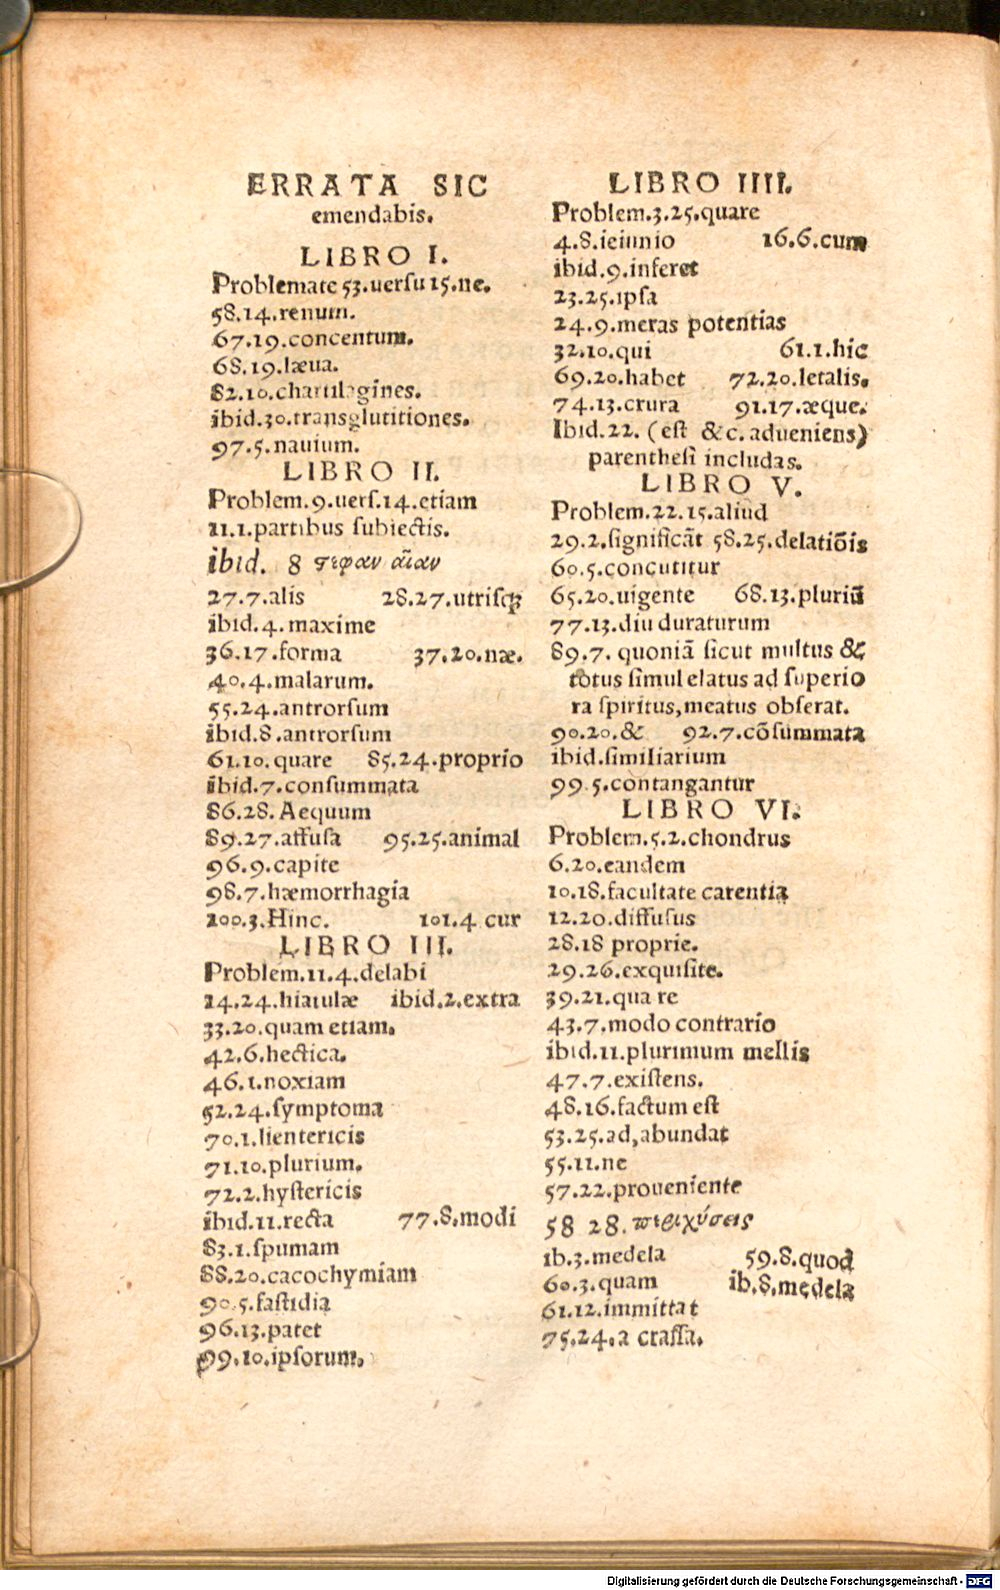 ERRATA SIC
emendabis.
LIBRO I.
Problemate 53.uersu 15.ne.
58.14.renum.
67.19.concentum.
68.19.læua.
82.10.chartilagines.
ibid.30.transglutitiones.
97.5.nauium.
LIBRO II.
Problem.9.uers.14.etiam
11.1.partibus subiectis.
ibid. 8
27.7.alis 28.27.utrisqꝫ
ibid.4.maxime
36.17.forma 37.20.næ.
40.4.malarum.
55.24.antrorsum
ibid.8.antrorsum
61.10.quare 85.24.proprio
ibid.7.consummata
86.28.Aequum
89.27.affusa 95.25.animal
96.9.capite
98.7.hæmorrhagia
100.3.Hinc. 101.4 cur
LIBRO III.
Problem.11.4.delabi
14.24.hiatulæ ibid.2.extra
33.20.quam etiam.
42.6.hectica.
46.1.noxiam
52.24.symptoma
70.1.lientericis
71.10.plurium.
72.2.hystericis
ibid.11.recta 77.8.modi
83.1.spumam
88.20.cacochymiam
90.5.fastidia
96.13.patet
99.10.ipsorum.
LIBRO IIII.
Problem.3.25.quare
4.8.ieiunio 16.6.cum
ibid.9.inferet
23.25.ipsa
24.9.meras potentias
32.10.qui 61.1.hic
69.20.habet 72.20.letalis.
74.13.crura 91.17.æque.
Ibid.22. (est &c.adueniens)
parenthesi includas.
LIBRO V.
Problem.22.15.aliud
29.2.significãt 58.25.delatiõis
60.5.concutitur
65.20.uigente 68.13.pluriũ
77.13.diu duraturum
89.7. quoniã sicut multus &
totus simul elatus ad superio
ra spiritus,meatus obserat.
90.20.& 92.7.cõsummata
ibid.similiarium
99 5.contangantur
LIBRO VI.
Problem.5.2.chondrus
6.20.eandem
10.18.facultate carentia
12.20.diffusus
28.18 proprie.
29.26.exquisite.
39.21.qua re
43.7.modo contrario
ibid.11.plurimum mellis
47.7.existens.
48.16.factum est
53.25.ad,abundat
55.11.ne
57.22.proueniente
58 28.περιχύσεις
ib.3.medela 59.8.quod
60.3.quam ib.8.medela
61.12.immittat
75.24.a crassa.
Digitalisierung gefördert durch die Deutsche Forschungsgemeinschaft - DFG